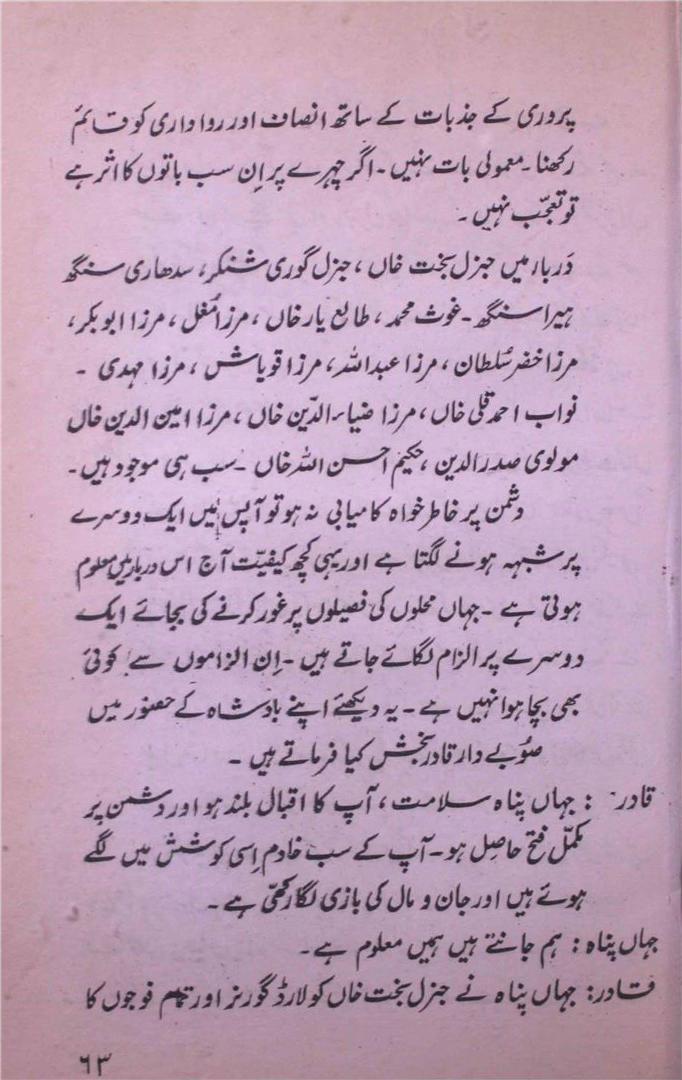 پروری کے جذبات کے ساتھ انصاف اور رواداری کو قائم
رکھنا۔ معمولی بات نہیں۔ اگر چہرے پر اِن سب باتوں کا اثر ہے
تو تعجّب نہیں۔
دَربار میں جنرل بخت خاں، جنرل گوری شنکر، سدھاری سنگھ
ہیرا سنگھ۔ غوث محمد، طالع یار خاں، مرزا مُغل، مرزا ابوبکر،
مرزا خضر سُلطان، مرزا عبداللہ، مرزا قویاش، مرزا مہدی۔
نواب احمد قلی خاں، مرزا ضیاءالدّین خاں، مرزا امین الدین خاں
مولوی صدرالدین، حکیم احسن اللہ خاں۔ سب ہی موجود ہیں۔
دشمن پر خاطر خواہ کامیابی نہ ہو تو آپس میں ایک دوسرے
پر شبہہ ہونے لگتا ہے اور یہی کچھ کیفیّت آج اس دربار میں معلوم
ہوتی ہے۔ جہاں محلوں کی فصیلوں پر غور کرنے کی بجائے ایک
دوسرے پر الزام لگائے جاتے ہیں۔ اِن الزاموں سے کوئی
بھی بچا ہوا نہیں ہے۔ یہ دیکھئے اپنے بادشاہ کے حضور میں
صُوبے دار قادر بخش کیا فرماتے ہیں۔
قادر: جہاں پناہ سلامت، آپ کا اقبال بلند ہو اور دشمن پر
مکمّل فتح حاصِل ہو۔ آپ کے سب خادم اِسی کوشش میں لگے
ہوئے ہیں اور جان و مال کی بازی لگا رکھّی ہے۔
جہاں پناہ: ہم جانتے ہیں ہمیں معلوم ہے۔
قادر: جہاں پناہ نے جنرل بخت خاں کو لارڈ گورنر اور تمام فوجوں کا
۶۳